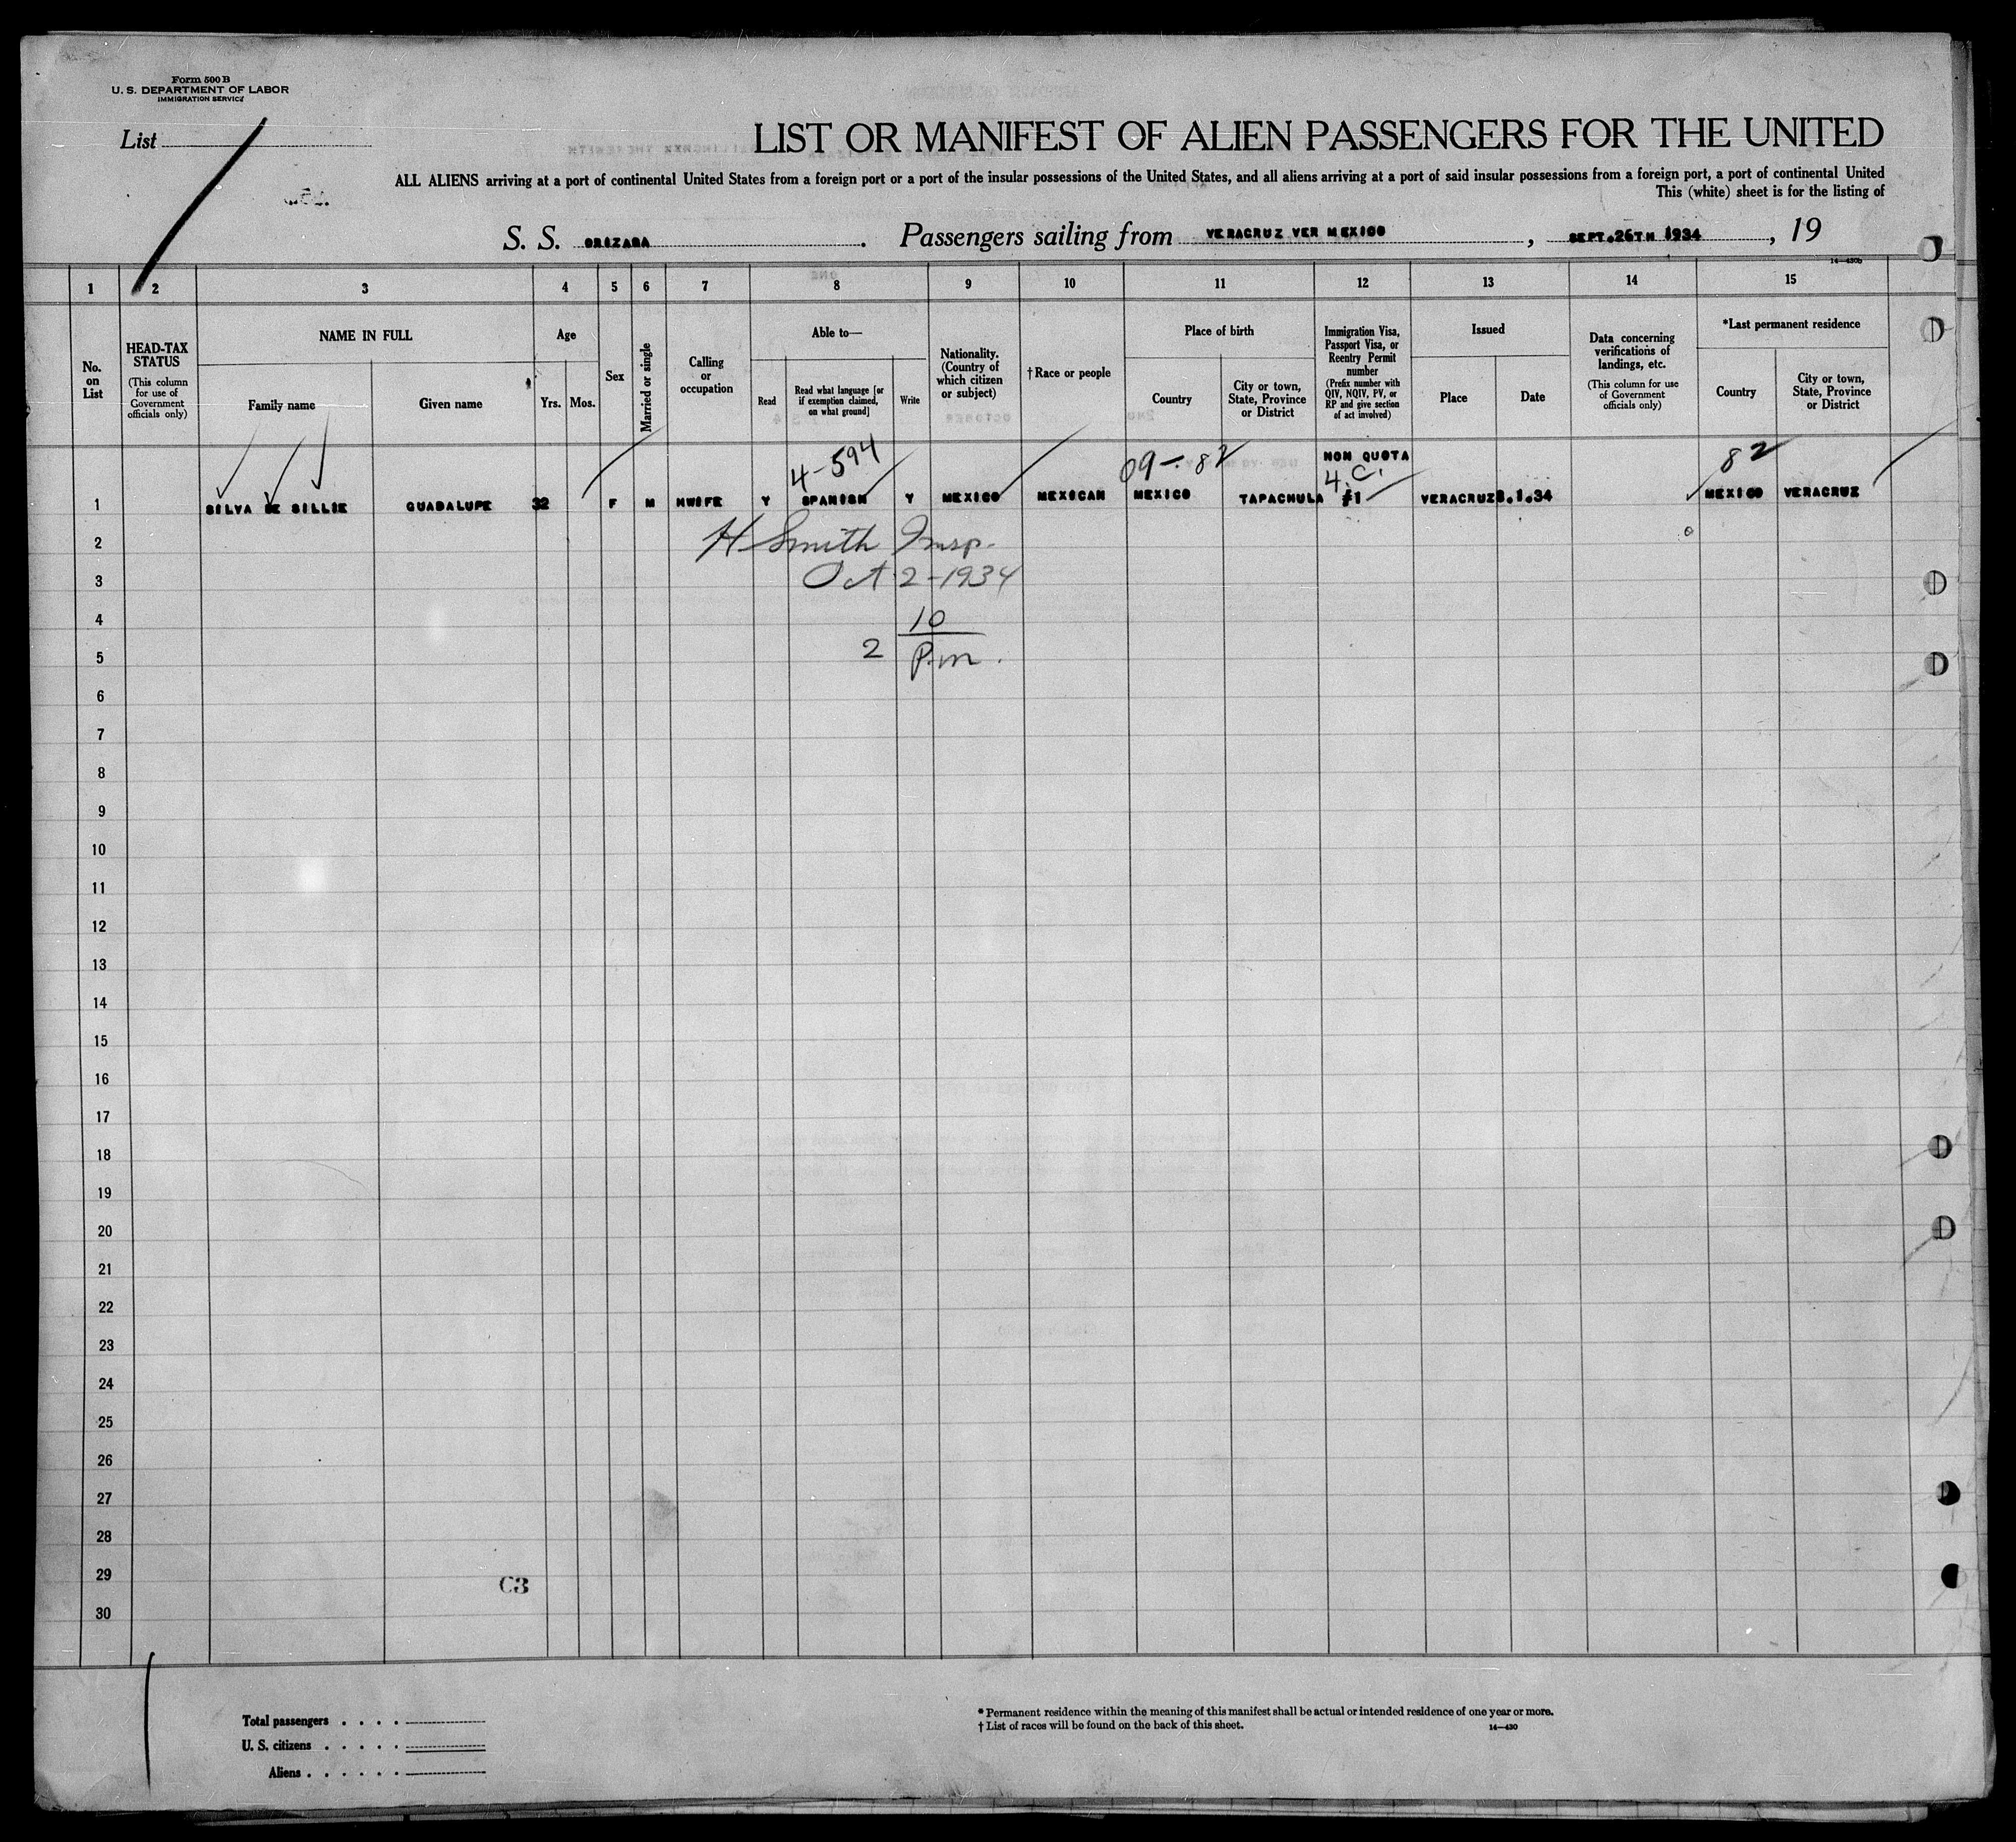 Form 500 B
U. S. DEPARTMENT OF LABOR
IMMIGRATION SERVICE
List
LIST OR MANIFEST OF ALIEN PASSENGERS FOR THE UNITED
ALL ALIENS arriving at a port of continental United States from a foreign port or a port of the insular possessions of the United States, and all aliens arriving at a port of said insular possessions from a foreign port, a port of continental United
This (white) sheet is for the listing of
S. S. ORIZABA . Passengers sailing from VERACRUZ VER MEXICO , SEPT.26TH 1934 , 19
14—430b
1 2 3 4 5 6 7 8 9 10 11 12 13 14 15
No. on List
HEAD-TAX STATUS
(This column for use of Government officials only)
NAME IN FULL
Family name
Given name
Age
Yrs. Mos.
Sex
Married or single
Calling or occupation
Able to—
Read
Read what language [or if exemption claimed, on what ground]
Write
Nationality. (Country of which citizen or subject)
†Race or people
Place of birth
Country
City or town, State, Province or District
Immigration Visa, Passport Visa, or Reentry Permit number
(Prefix number with QIV, NQIV, PV, or RP and give section of act involved)
Issued
Place
Date
Data concerning verifications of landings, etc.
(This column for use of Government officials only)
*Last permanent residence
Country
City or town, State, Province or District
4-594 09-82 NON QUOTA 82
4.C.
1 SILVA DE SILLIE GUADALUPE 32 F M HWIFE Y SPANISH Y MEXICO MEXICAN MEXICO TAPACHULA #1 VERACRUZ 8.1.34 MEXICO VERACRUZ
2 H Smith Insp.
3 Oct 2-1934
4 10
5 2 P.m.
6
7
8
9
10
11
12
13
14
15
16
17
18
19
20
21
22
23
24
25
26
27
28
29 C3
30
Total passengers . . . .
U. S. citizens . . . . .
Aliens . . . . . .
* Permanent residence within the meaning of this manifest shall be actual or intended residence of one year or more.
† List of races will be found on the back of this sheet.
14—430